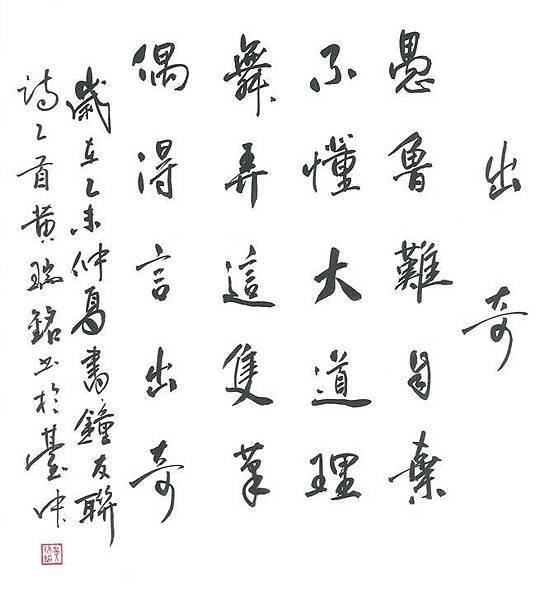 出奇
愚魯難自棄
不懂大道理
舞弄這隻筆
偶得言出奇
歲在乙未仲夏書鐘友聯
詩乙首黃瑞銘書於臺中